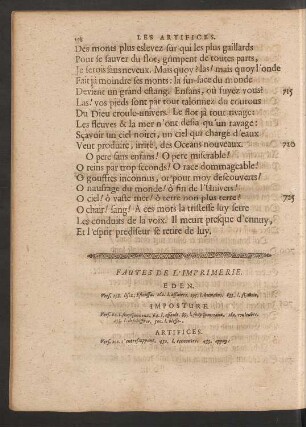 LES ARTIFICES.
Des monts plus eslevez sur qui les plus gaillards
Pour se sauver du flot, grimpent de toutes parts,
Je serois sans neveux. Mais quoy? las! mais quoy? l'onde
Fait jà moindre ses monts: la sur-face du monde
Devient un grand estang. Enfans, où fuyez vous? 715
Las! vos pieds sont par tout talonnez du courous
Du Dieu croule-univers. Le flot jà tout ravage:
Les fleuves & la mer n'ont desja qu'un rivage:
Sçavoir un ciel noirci, un ciel qui chargé d'eaux
Veut produire, irité, des Oceans nouveaux. 720
O pere sans enfans! O pere miserable!
O reins par trop feconds! O race dommageable!
O gouffres inconnus, or' pour moy descouvers!
O naufrage du monde! ô fin de l'Univers!
O ciel! ô vaste mer! ô terre non plus terre! 725
O chair! sang! A ces mots la tristesse luy serre
Les conduits de la voix. Il meurt presque d'ennuy,
Et l'esprit predizeur se retire de luy.
FAUTES DE L'IMPRIMERIE.
EDEN.
IMPOSTURE
ARTIFICES.